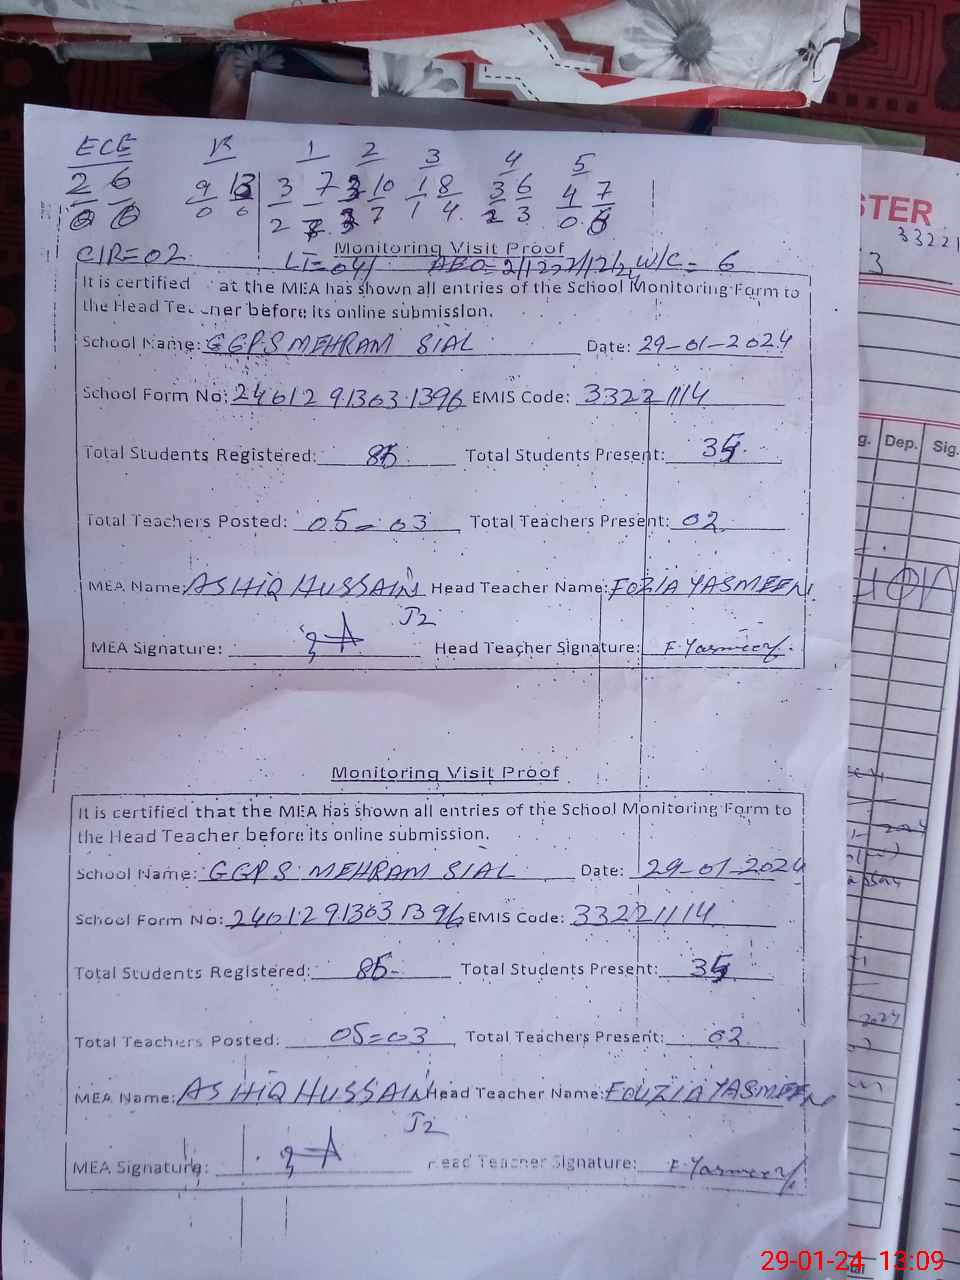 ECE K 1 2 3 4 5
2 6 9 13 3 7 3 10 1 8 3 6 4 7
0 0 0 6 2 7 1 4 2 3 0
CIR=02
Monitoring Visit Proof
LT=04/ W/C = 6
It is certified at the MEA has shown all entries of the School Monitoring Form to
the Head Te ner before its online submission.
School Name: GGPS MEHRAM SIAL Date: 29-01-2024
School Form No: 24012913031396 EMIS Code: 33221114
Total Students Registered: 85 Total Students Present: 35
Total Teachers Posted: 05=03 Total Teachers Present: 02
MEA Name: ASHIQ HUSSAIN Head Teacher Name: FOZIA YASMEEN
52
MEA Signature: Head Teacher Signature: F. Yasmeen
Monitoring Visit Proof
It is certified that the MEA has shown all entries of the School Monitoring Form to
the Head Teacher before its online submission.
School Name: GGPS MEHRAM SIAL Date: 29-01-2024
School Form No: 24012913031396 EMIS Code: 33221114
Total Students Registered: 85 Total Students Present: 35
Total Teachers Posted: 05=03 Total Teachers Present: 02
MEA Name: ASHIQ HUSSAIN Head Teacher Name: FOUZIA YASMEEN
52
MEA Signature: Head Teacher Signature: F. Yasmeen
STER
33221
3
g. Dep. Sig.
29-01-24 13:09